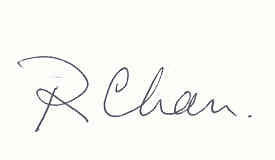 R Chan.